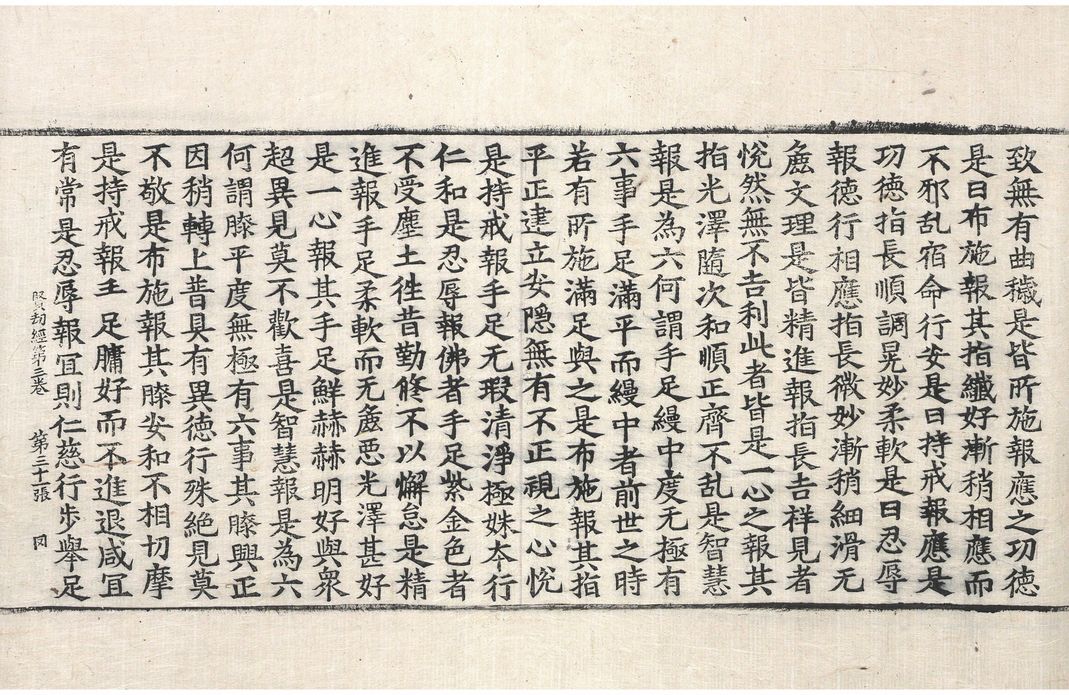 致無有曲穢是皆所施報應之功德
是曰布施報其指纖好漸稍相應而
不邪乱宿命行安是曰持戒報應是
功德指長順調晃妙柔軟是曰忍辱
報德行相應指長微妙漸稍細滑无
麁文理是皆精進報指長吉祥見者
悅然無不吉利此者皆是一心之報其
指光澤隨次和順正齊不乱是智慧
報是為六何謂手足縵中度无極有
六事手足滿平而縵中者前世之時
若有所施滿足與之是布施報其指
平正建立安隠無有不正視之心悅
是持戒報手足无瑕清淨極姝夲行
仁和是忍辱報佛者手足紫金色者
不受塵土徃昔勤修不以懈怠是精
進報手足柔軟而无麁悪光澤甚好
是一心報其手足鮮赫赫明好與衆
超異見莫不歡喜是智慧報是為六
何謂膝平度無極有六事其膝興正
因稍轉上普具有異德行殊絕見莫
不敬是布施報其膝安和不相切摩
是持戒報主足膊好而不進退咸冝
有常是忍辱報冝則仁慈行步擧足
賢劫經第三卷 第三十一張 同